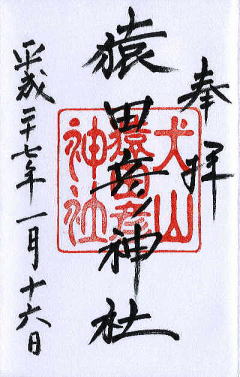 奉拝
猿田彦神社
犬山
猿田彦
神社
平成二十七年一月十六日